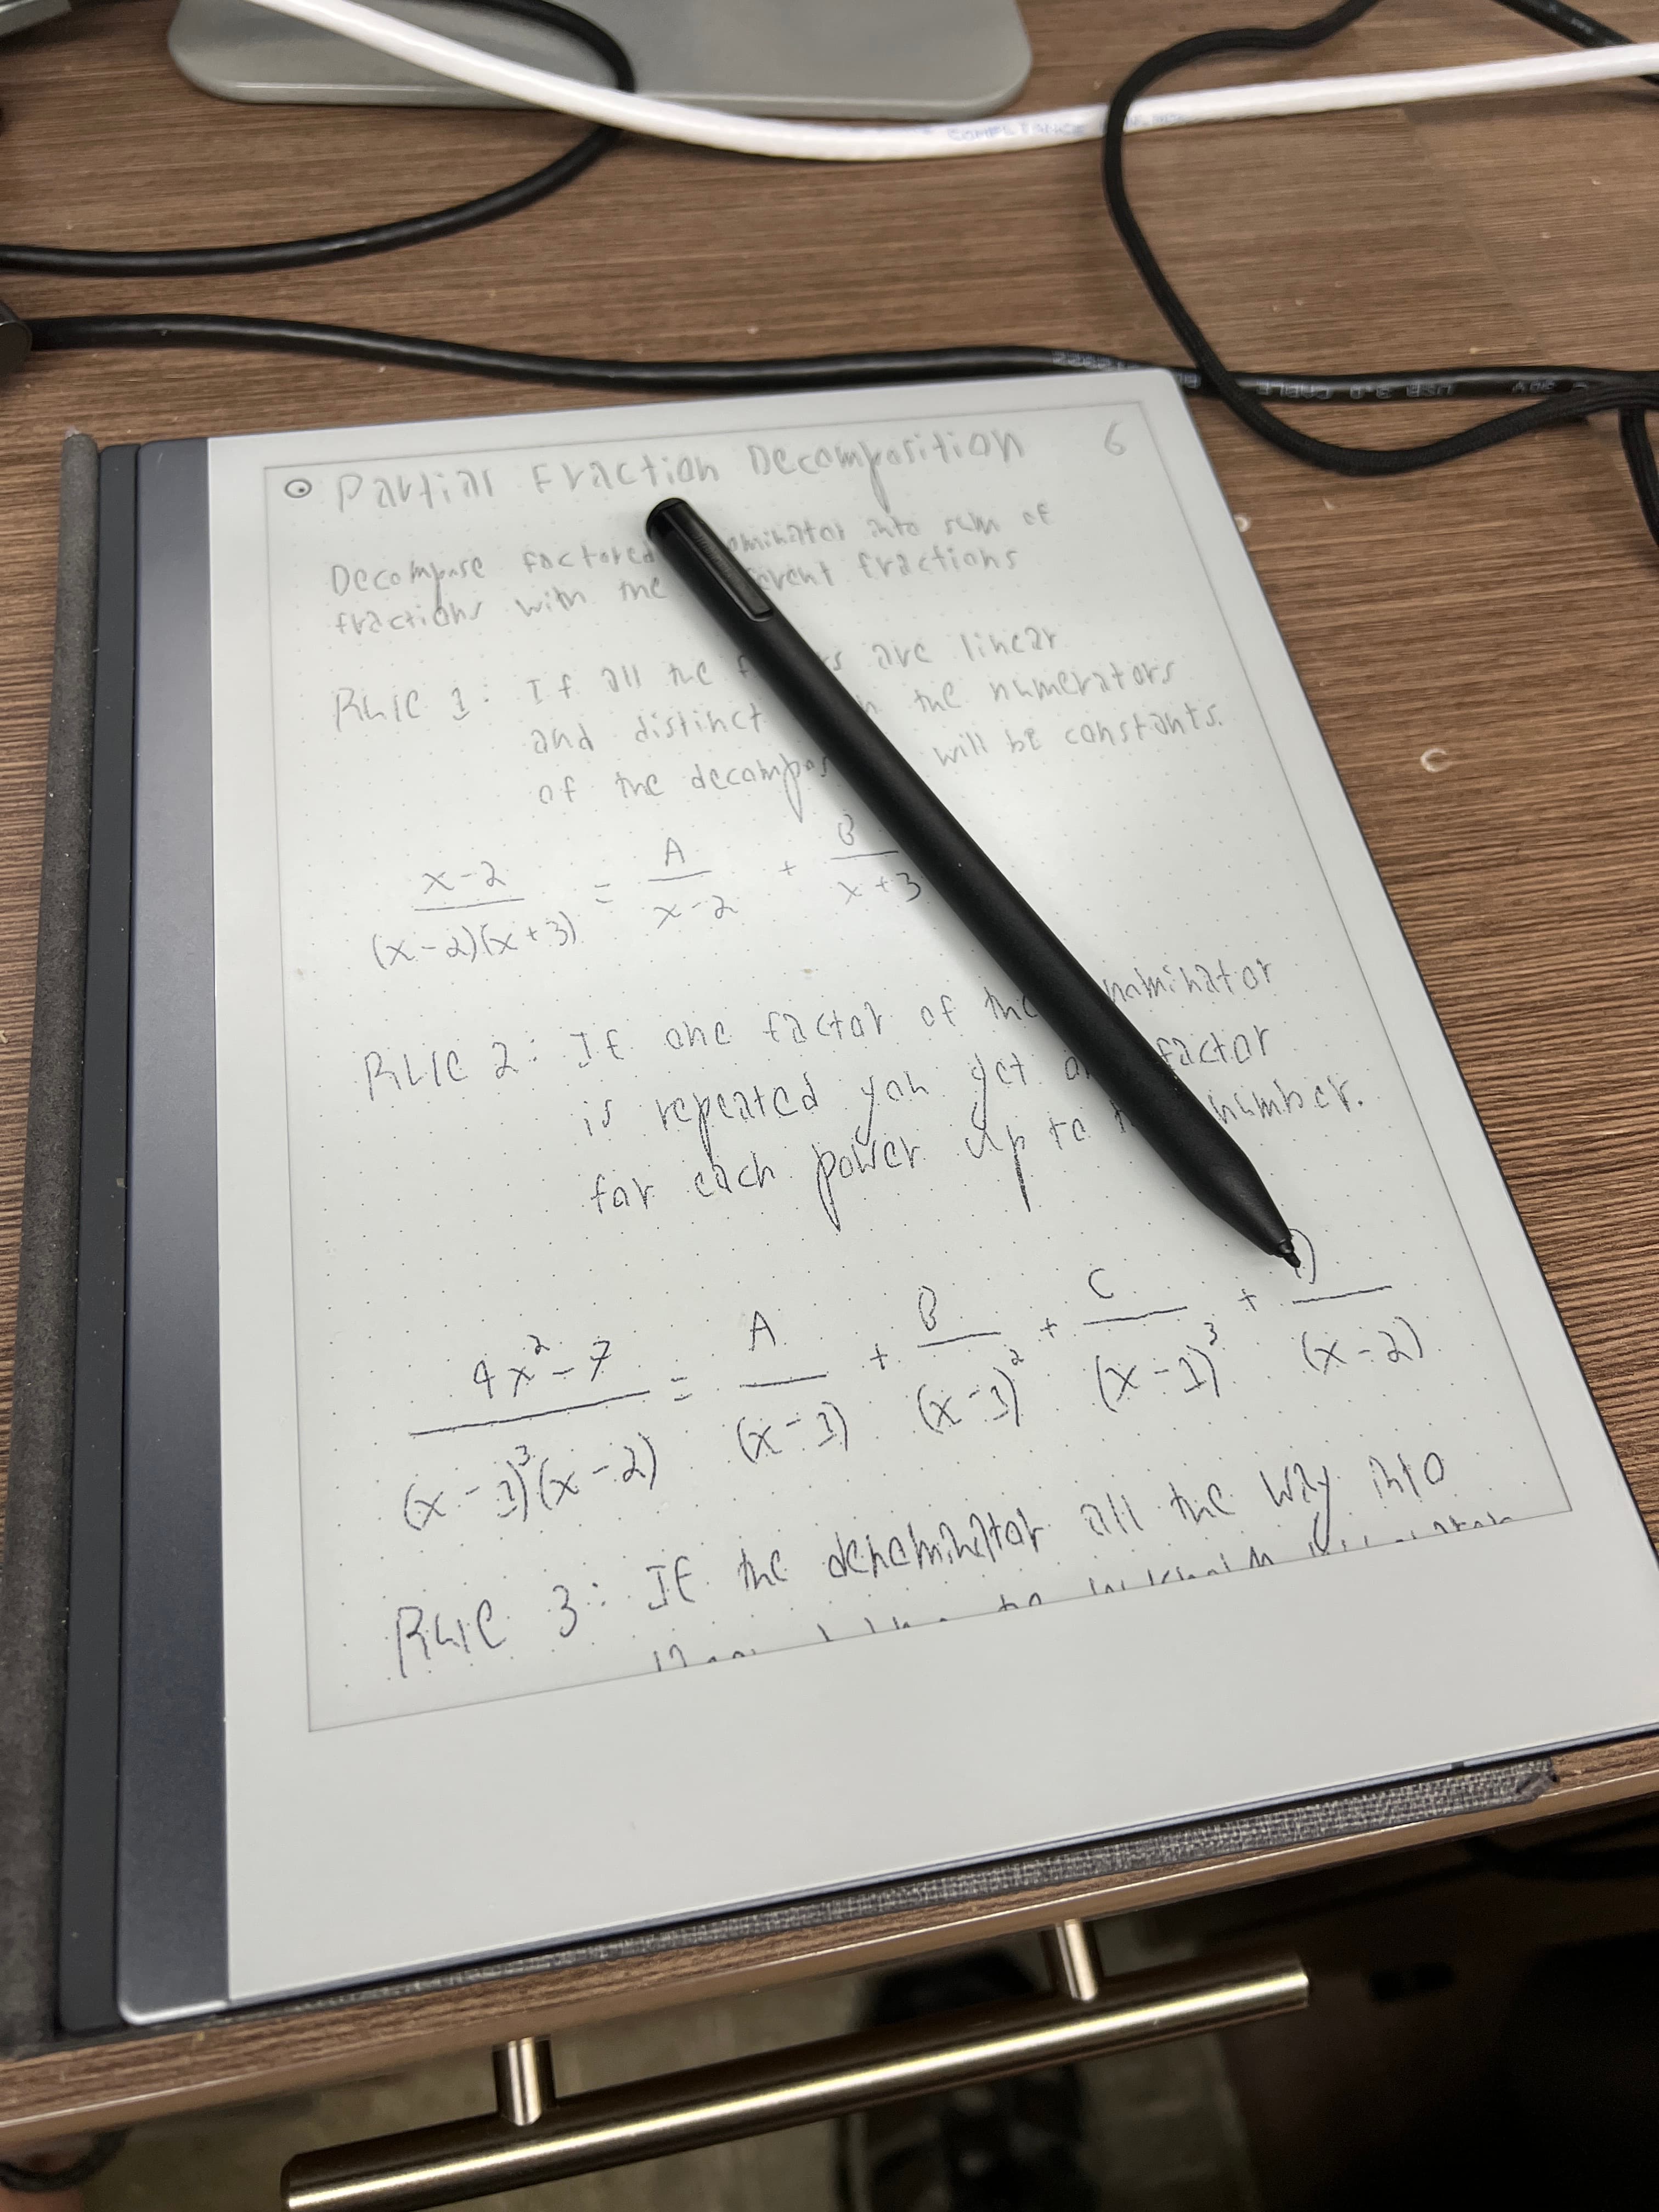 Partial Fraction Decomposition 6
Decompose factored into sum of
fractions with the fractions
Rule 1: If all the are linear
and distinct the numerators
of the will be constants.
x-2 / (x-2)(x+3) = A / x-2 + B / x+3
Rule 2: If one factor of the
is repeated you get factor
for each power up to number.
4x² - 7 / (x-1)³(x-2) = A / (x-1) + B / (x-1)² + C / (x-1)³ + D / (x-2)
Rule 3: If the denominator all the way into